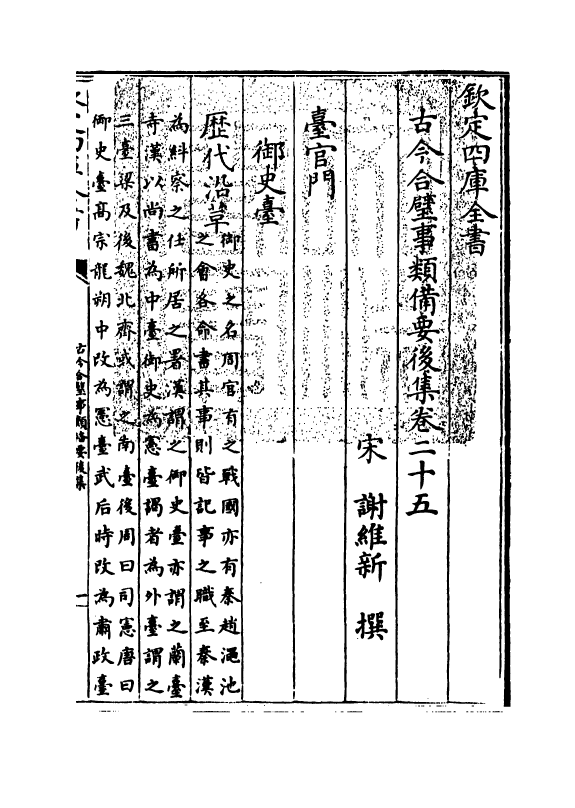 欽定四庫全書
古今合璧事類備要後集卷二十五
宋 謝維新 撰
臺官門
御史臺
歷代沿革
御史之名周官有之戰國亦有秦趙澠池
之會各命書其事則皆記事之職至秦漢
為糾察之任所居之署漢謂之御史臺亦謂之蘭臺
寺漢以尚書為中臺御史為憲臺謁者為外臺謂之
三臺梁及後魏北齊或謂之南臺後周曰司憲唐曰
御史臺高宗龍朔中改為憲臺武后時改為肅政臺
古今合璧事類備要後集
一